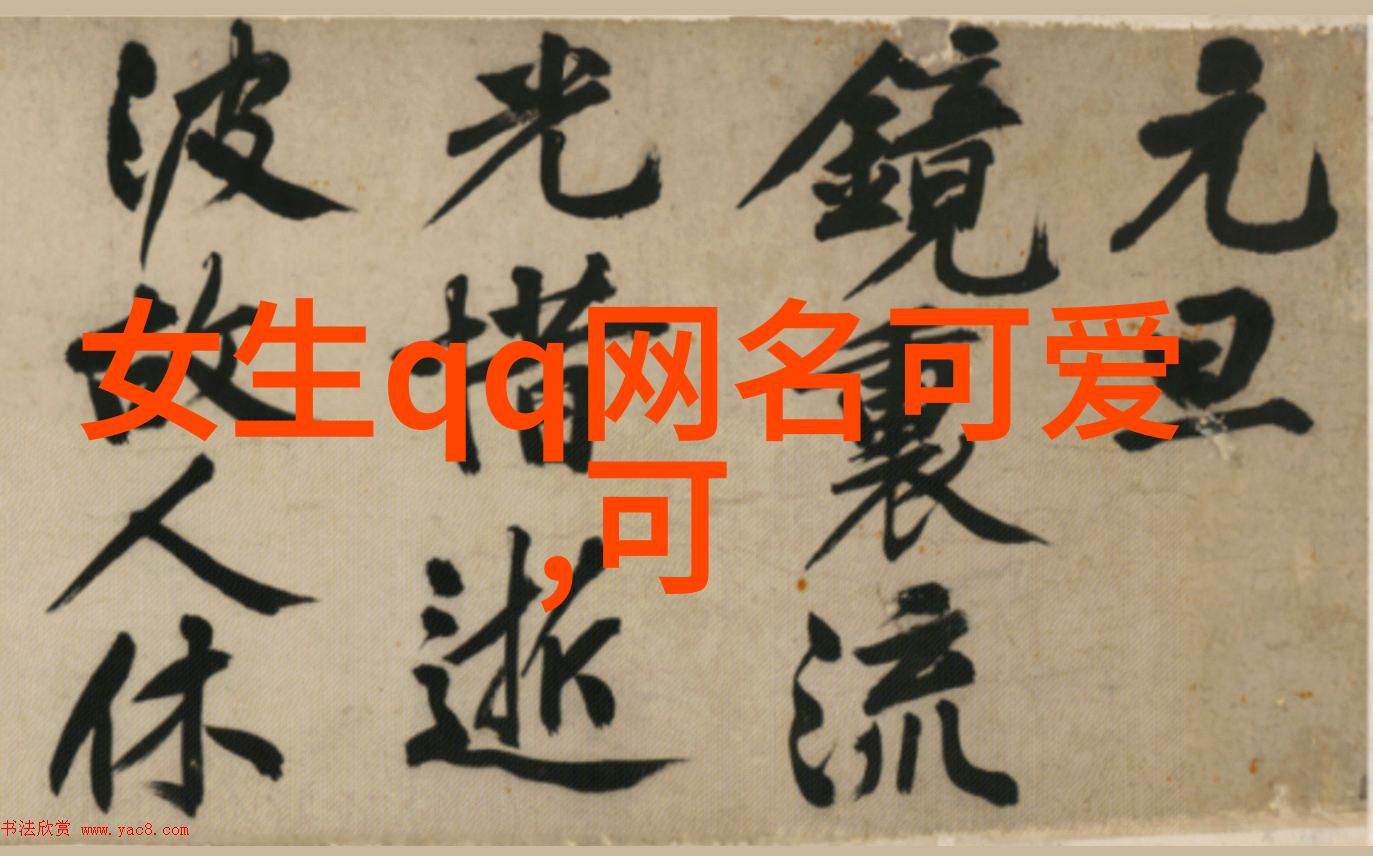 元旦
鏡裏流
光惜逝
波故人休
女生qq网名可爱
,可
书法欣赏 www.yac8.com